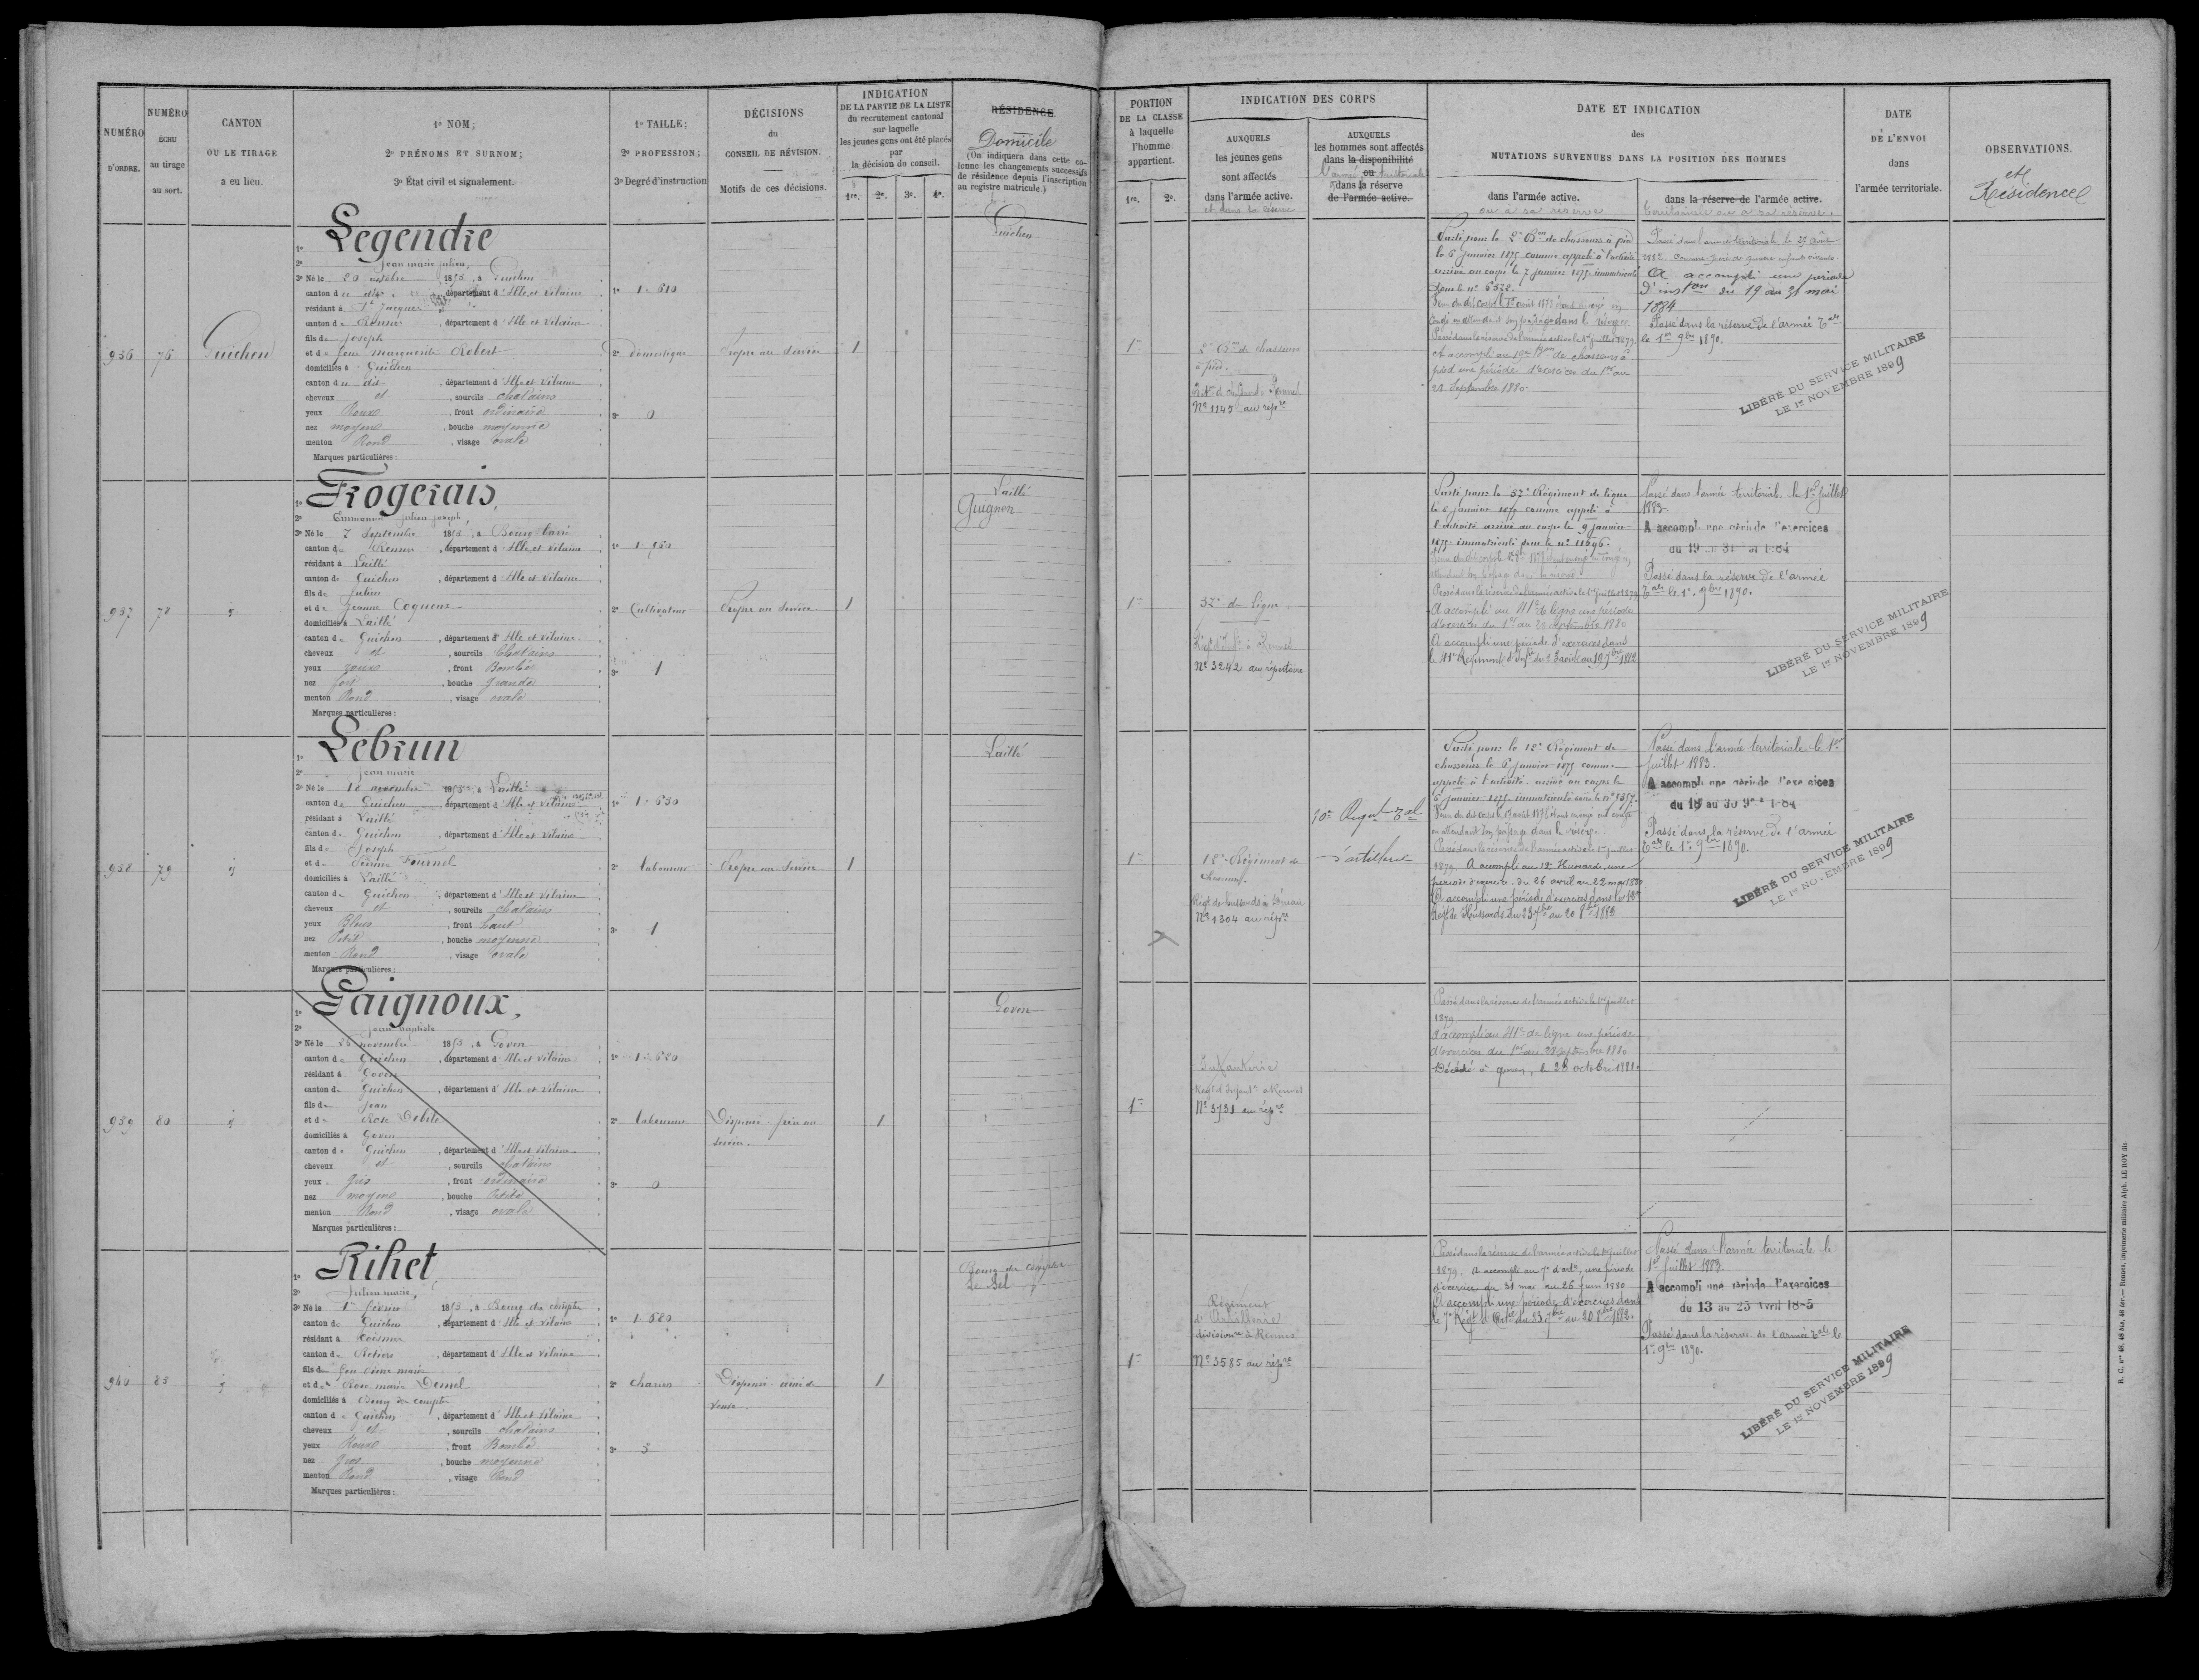 NUMÉRO
D'ORDRE.
NUMÉRO
ÉCHU
au tirage
au sort.
CANTON
OU LE TIRAGE
a eu lieu.
1º NOM;
2º PRÉNOMS ET SURNOM;
3º État civil et signalement.
1º TAILLE;
2º PROFESSION;
3º Degré d'instruction
DÉCISIONS
du
CONSEIL DE RÉVISION.
Motifs de ces décisions.
INDICATION
DE LA PARTIE DE LA LISTE
du recrutement cantonal
sur laquelle
les jeunes gens ont été placés
par
la décision du conseil.
1re. 2e. 3e. 4e.
RÉSIDENCE
Domicile
(On indiquera dans cette co-
lonne les changements successifs
de résidence depuis l'inscription
au registre matricule.)
PORTION
DE LA CLASSE
à laquelle
l'homme
appartient.
1re. 2e.
INDICATION DES CORPS
AUXQUELS
les jeunes gens
sont affectés
dans l'armée active.
et dans la réserve
AUXQUELS
les hommes sont affectés
dans la disponibilité
ou
l'armée territoriale
dans la réserve
de l'armée active.
DATE ET INDICATION
des
MUTATIONS SURVENUES DANS LA POSITION DES HOMMES
dans l'armée active.
ou à sa réserve
dans la réserve de l'armée active.
territoriale ou à sa réserve.
DATE
DE L'ENVOI
dans
l'armée territoriale.
OBSERVATIONS.
et
Résidence
936
76
Guichen
1º Legendre
2º Jean marie julien,
3º Né le 20 octobre 1853, à Guichen
canton du dit, département d'Ille et Vilaine
résidant à St Jacques
canton de Rennes, département d'Ille et Vilaine
fils de Joseph
et de feue Marguerite Robert
domiciliés à Guichen
canton du dit, département d'Ille et Vilaine
cheveux et, sourcils chatains
yeux Roux, front ordinaire
nez moyen, bouche moyenne
menton Rond, visage ovale
Marques particulières:
1º 1.610
2º Domestique
3º 0
Propre au Service
1
Guichen
1re
2e Bon de chasseurs
à pied.
Nº 1145 au répre
Parti pour le 2e Bon de chasseurs à pied
le 6 janvier 1875 comme appelé à l'activité
arrivé au corps le 7 janvier 1875. immatriculé
sous le nº 6372.
congé en attendant son passage dans la réserve
Passé dans la réserve de l'armée active le 1er juillet 1879.
A accompli au 10e Bon de chasseurs à
pied une période d'exercices du 1er au
28 Septembre 1880.
Passé dans l'armée territoriale le 29 août
1882 comme père de quatre enfants vivants
A accompli une période
d'inston du 19 au 31 mai
1884
Passé dans la réserve de l'armée Tale
le 1er 9bre 1890.
LIBÉRÉ DU SERVICE MILITAIRE
LE 1er NOVEMBRE 1899
937
78
1º Frogerais,
2º Emmanuel Julien Joseph,
3º Né le 7 Septembre 1853, à Bourg-barré
canton de Rennes, département d'Ille et Vilaine
résidant à Laillé
canton de Guichen, département d'Ille et Vilaine
fils de Julien
et de Jeanne Coqueux
domiciliés à Laillé
canton de Guichen, département d'Ille et Vilaine
cheveux et, sourcils Chatains
yeux roux, front Bombé
nez fort, bouche grande
menton Rond, visage ovale
Marques particulières:
1º
2º Cultivateur
3º 1
Propre au Service
1
Laillé
Guignen
1re
37e de Ligne.
Nº 3242 au répertoire
Parti pour le 37e Régiment de ligne
le 8 janvier 1875 comme appelé à
l'activité arrivé au corps le 9 janvier
1875. immatriculé sous le nº 11696.
attendant son passage dans la réserve
Passé dans la réserve de l'armée active le 1er juillet 1879
A accompli au 41e de ligne une période
d'exercices du 1er au 28 septembre 1880
A accompli une période d'exercices dans
le 41e Régiment d'Infie du 23 août au 19 7bre 1882
Passé dans l'armée territoriale le 1er Juillet
1883.
A accompli une période d'exercices
du 19 au 31 mai 1884
Passé dans la réserve de l'armée
Tale le 1er 9bre 1890.
LIBÉRÉ DU SERVICE MILITAIRE
LE 1er NOVEMBRE 1899
938
79
1º Lebrun
2º Jean marie
3º Né le 18 novembre 1853, à Laillé
canton de Guichen, département d'Ille et Vilaine
résidant à Laillé
canton de Guichen, département d'Ille et Vilaine
fils de Joseph
et de Fournel
domiciliés à Laillé
canton de Guichen, département d'Ille et Vilaine
cheveux et, sourcils chatains
yeux Bleus, front haut
nez Petit, bouche moyenne
menton Rond, visage ovale
Marques particulières:
1º 1.630
2º laboureur
3º 1
Propre au Service
1
Laillé
1re
12e Régiment de
chasseurs.
Nº 1304 au répre
10e Regnt Tal
d'artillerie
Parti pour le 12e Régiment de
chasseurs le 6 janvier 1875 comme
appelé à l'activité arrivé au corps le
8 janvier 1875. immatriculé sous le nº 1357.
en attendant son passage dans la réserve
Passé dans la réserve de l'armée active le 1er juillet
1879. A accompli au 12e Hussards, une
période d'exercices, du 26 avril au 22 mai 1880
A accompli une période d'exercices dans le 12e
Régt de Hussards du 23 7bre au 20 8bre 1882
Passé dans l'armée territoriale le 1er
juillet 1883.
A accompli une période d'exercices
du 18 au 30 9bre 1884
Passé dans la réserve de l'armée
Tale le 1er 9bre 1890.
LIBÉRÉ DU SERVICE MILITAIRE
LE 1er NOVEMBRE 1899
939
80
1º Gaignoux,
2º jean baptiste
3º Né le 26 novembre 1853, à Goven
canton de Guichen, département d'Ille et Vilaine
résidant à Goven
canton de Guichen, département d'Ille et Vilaine
fils de Jean
et de Rose Debile
domiciliés à Goven
canton de Guichen, département d'Ille et Vilaine
cheveux et, sourcils chatains
yeux gris, front ordinaire
nez moyen, bouche Petite
menton Rond, visage ovale
Marques particulières:
1º 1.680
2º laboureur
3º 0
Dispensé frère au
service.
1
Goven
1re
Infanterie
Régt d'Infantie à Rennes
Nº 3731 au répre
Passé dans la réserve de l'armée active le 1er juillet
1879.
A accompli au 41e de ligne une période
d'exercices du 1er au 28 septembre 1880
Décédé à goven, le 28 octobre 1881.
940
85
1º Rihet,
2º Julien marie,
3º Né le 1er février 1853, à Bourg des comptes
canton de Guichen, département d'Ille et Vilaine
résidant à Coësmes
canton de Retiers, département d'Ille et Vilaine
fils de feu
et de Rose marie
domiciliés à Bourg des comptes
canton de Guichen, département d'Ille et Vilaine
cheveux et, sourcils chatains
yeux Roux, front Bombé
nez gros, bouche moyenne
menton Rond, visage Rond
Marques particulières:
1º 1.680
2º charron
3º 3
Dispensé ainé de
veuve.
1
Bourg des comptes
Le Sel
1re
Régiment
d'Artillerie
divisionre à Rennes
Nº 3585 au répre
Passé dans la réserve de l'armée active le 1er juillet
1879. A accompli au 7e d'artie, une période
d'exercices, du 31 mai au 26 juin 1880
A accompli une période d'exercices dans
le 7e Régt d'Artie du 23 7bre au 20 8bre 1882.
Passé dans l'armée territoriale le
1er Juillet 1883.
A accompli une période d'exercices
du 13 au 25 Avril 1885
Passé dans la réserve de l'armée Tale le
1er 9bre 1890.
LIBÉRÉ DU SERVICE MILITAIRE
LE 1er NOVEMBRE 1899
R. C. nos 48, 48 bis, 48 ter.— Rennes, imprimerie militaire Alph. LE ROY fils